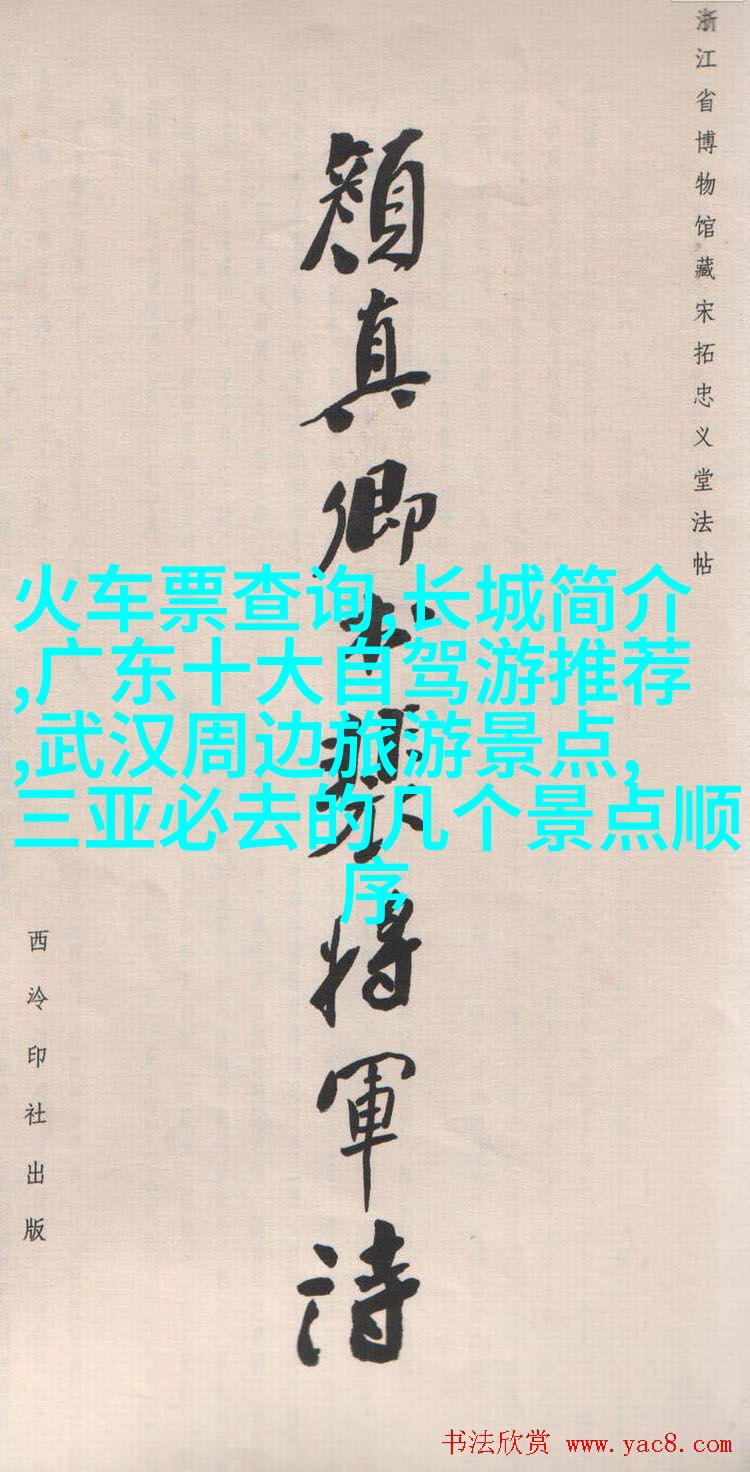 浙江省博物馆藏宋拓忠义堂法帖
顏真卿书裴将軍诗
火车票查询,长城简介
,广东十大自驾游推荐
,武汉周边旅游景点,
三亚必去的几个景点顺
序
西泠印社出版
书法欣赏 www.yac8.com